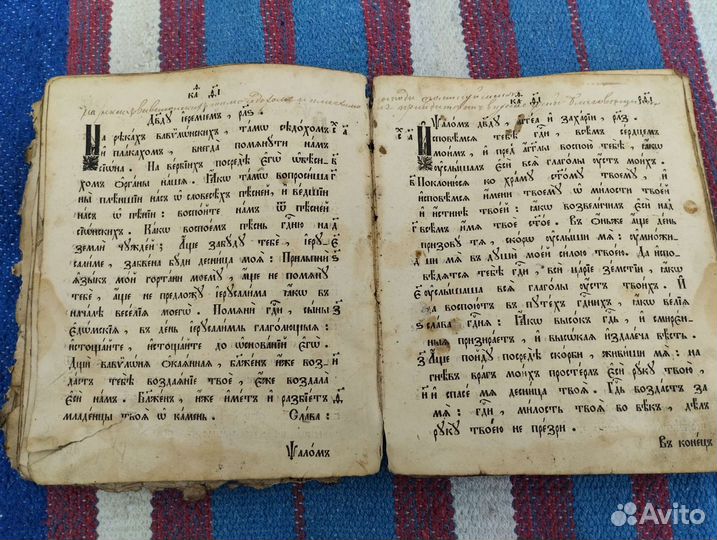 ка҃
Дв҃ду і҆еремі́емъ, рл҃ѕ
На рѣка́хъ вавѷлѡ́нскихъ, та́мѡ сѣдо́хомъ
и҆ пла́кахомъ, внегда̀ помѧнꙋ́ти на́мъ
сїѡ́на. На ве́рбїихъ посредѣ̀ є҆гѡ̀ ѡ҆бѣ́си-
хомъ ѻ҆рга́ны на́шѧ. Ꙗ҆́кѡ та́мѡ вопроси́ша
ны̀ плѣ́ншїи на́съ ѡ҆ словесѣ́хъ пѣ́сней, и҆ ве́дшїи
на́съ ѡ҆ пѣ́нїи: воспо́йте на́мъ ѿ пѣ́сней
сїѡ́нскихъ. Ка́кѡ воспое́мъ пѣ́снь гдⷭ҇ню на
землѝ чꙋжде́й; А҆́ще забꙋ́дꙋ тебѐ, і҆ерꙋ-
сали́ме, забве́на бꙋ́ди десни́ца моѧ̀: Прильпнѝ
ꙗ҆зы́къ мо́й горта́ни моемꙋ̀, а҆́ще не помѧнꙋ̀
тебѐ, а҆́ще не предложꙋ̀ і҆ерⷭ҇али́ма ꙗ҆́кѡ въ
нача́лѣ весе́лїѧ моегѡ̀. Помѧнѝ гдⷭ҇и, сы́ны
є҆дѡ́мскїѧ, въ де́нь і҆ерⷭ҇али́мль глаго́лющыѧ:
и҆стоща́йте, и҆стоща́йте до ѡ҆снова́нїй є҆гѡ̀.
Дщѝ вавѷлѡ́нѧ ѻ҆каѧ́ннаѧ, бл҃же́нъ и҆́же воз-
да́стъ тебѣ̀ воздаѧ́нїе твоѐ, є҆́же воздала̀
є҆сѝ на́мъ. Бл҃же́нъ, и҆́же и҆́метъ и҆ разбїе́тъ
младе́нцы твоѧ̀ ѡ҆ ка́мень. Сла́ва:
Ѱало́мъ
ка҃
Ѱало́мъ дв҃дꙋ, а҆гге́а и҆ заха́рїи, рл҃з
И҆сповѣ́мсѧ тебѣ̀ гдⷭ҇и, всѣ́мъ се́рдцемъ
мои́мъ, и҆ пред̾ а҆́гг҃лы воспою̀ тебѣ̀, ꙗ҆́кѡ
ᲂу҆слы́шалъ є҆сѝ всѧ̑ глаго́лы ᲂу҆́стъ мои́хъ.
Поклоню́сѧ ко хра́мꙋ ст҃о́мꙋ твоемꙋ̀, и҆
и҆сповѣ́мсѧ и҆́мени твоемꙋ̀ ѡ҆ ми́лости твое́й
и҆ и҆́стинѣ твое́й: ꙗ҆́кѡ возвели́чилъ є҆сѝ над̾
всѣ́мъ и҆́мѧ твоѐ ст҃о́е. Въ ѻ҆́ньже а҆́ще де́нь
призовꙋ́ тѧ, ско́рѡ ᲂу҆слы́ши мѧ̀: ᲂу҆мно́жи-
ши мѧ̀ въ дꙋшѝ мое́й си́лою твое́ю. Да и҆спо-
вѣ́дѧтсѧ тебѣ̀ гдⷭ҇и, всѝ ца́рїе зе́мстїи, ꙗ҆́кѡ
ᲂу҆слы́шаша всѧ̑ глаго́лы ᲂу҆́стъ твои́хъ. И҆
да воспою́тъ въ пꙋте́хъ гдⷭ҇нихъ, ꙗ҆́кѡ ве́лїѧ
сла́ва гдⷭ҇нѧ: Ꙗ҆́кѡ высо́къ гдⷭ҇ь, и҆ смире́н-
ныѧ призира́етъ, и҆ высѡ́каѧ и҆здале́ча вѣ́сть.
А҆́ще пойдꙋ̀ посредѣ̀ ско́рби, живи́ши мѧ̀: на
гнѣ́въ вра̑гъ мои́хъ просте́рлъ є҆сѝ рꙋ́кꙋ твою̀,
и҆ спасе́ мѧ десни́ца твоѧ̀. Гдⷭ҇ь возда́стъ за
мѧ̀: гдⷭ҇и, ми́лость твоѧ̀ во вѣ́къ, дѣ́лъ
рꙋкꙋ̀ твое́ю не пре́зри.
Въ коне́цъ
Avito